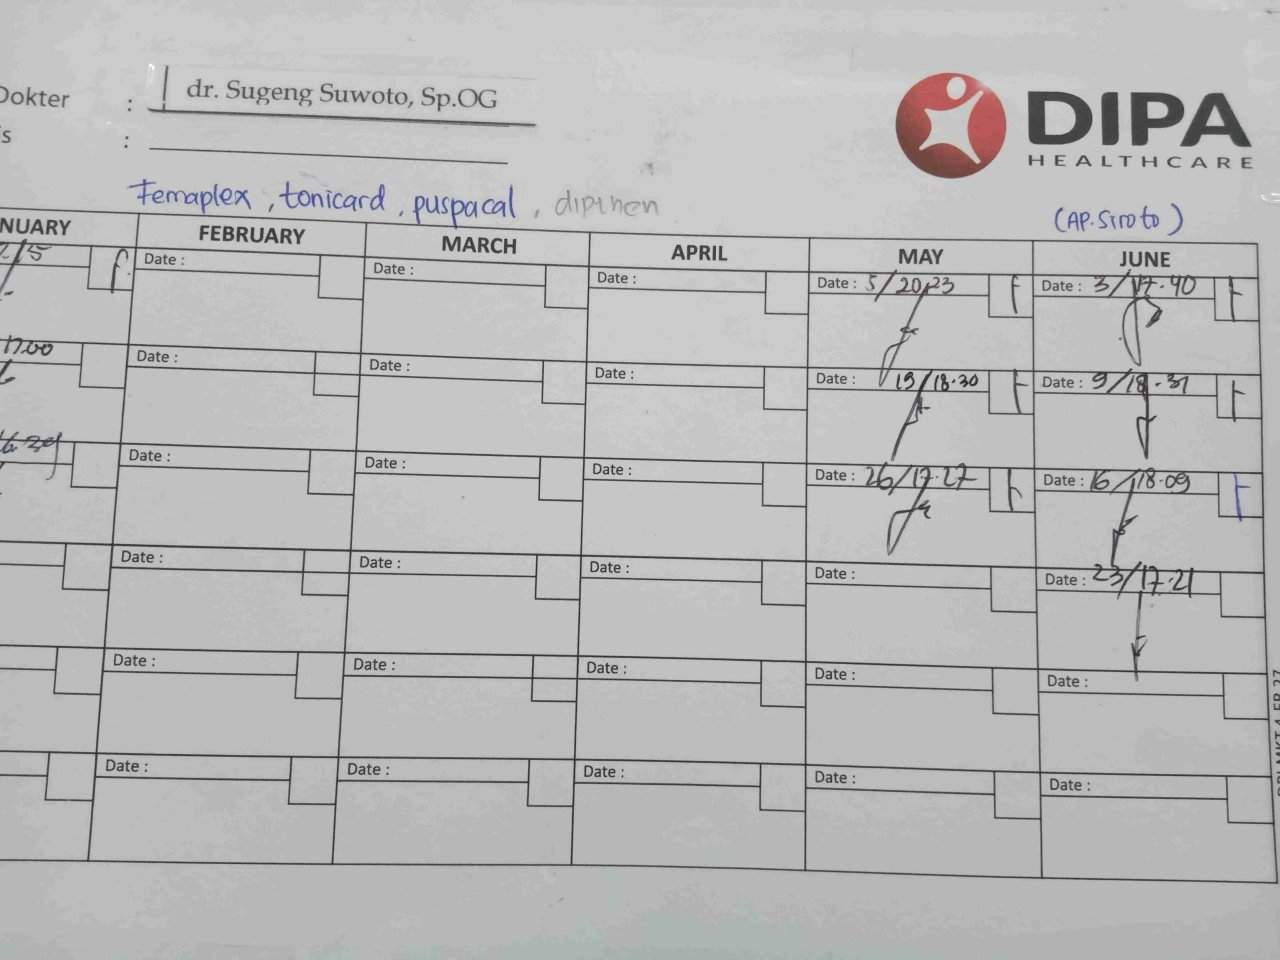 Dokter : dr. Sugeng Suwoto, Sp.OG
is :
DIPA
HEALTHCARE
Femaplex, tonicard, puspacal, dipthen
(AP. Siroto)
NUARY FEBRUARY MARCH APRIL MAY JUNE
2/5 Date : Date : Date : Date : 5/20.23 Date : 3/17.40
17.00 Date : Date : Date : Date : 19/18.30 Date : 9/18.31
Date : Date : Date : Date : 26/17.27 Date : 16/18.09
Date : Date : Date : Date : Date : 23/17.21
Date : Date : Date : Date : Date :
Date : Date : Date : Date : Date :